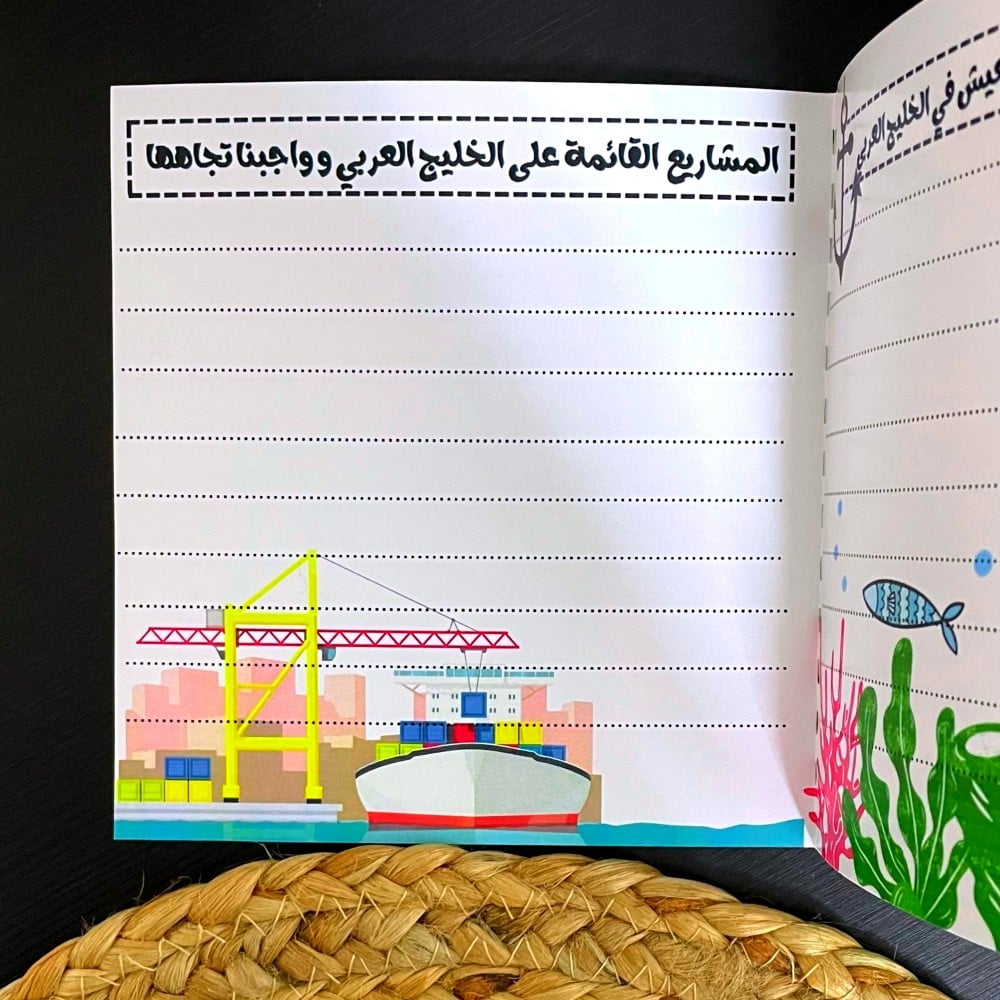 المشاريع القائمة على الخليج العربي وواجبنا تجاهها
في الخليج العربي